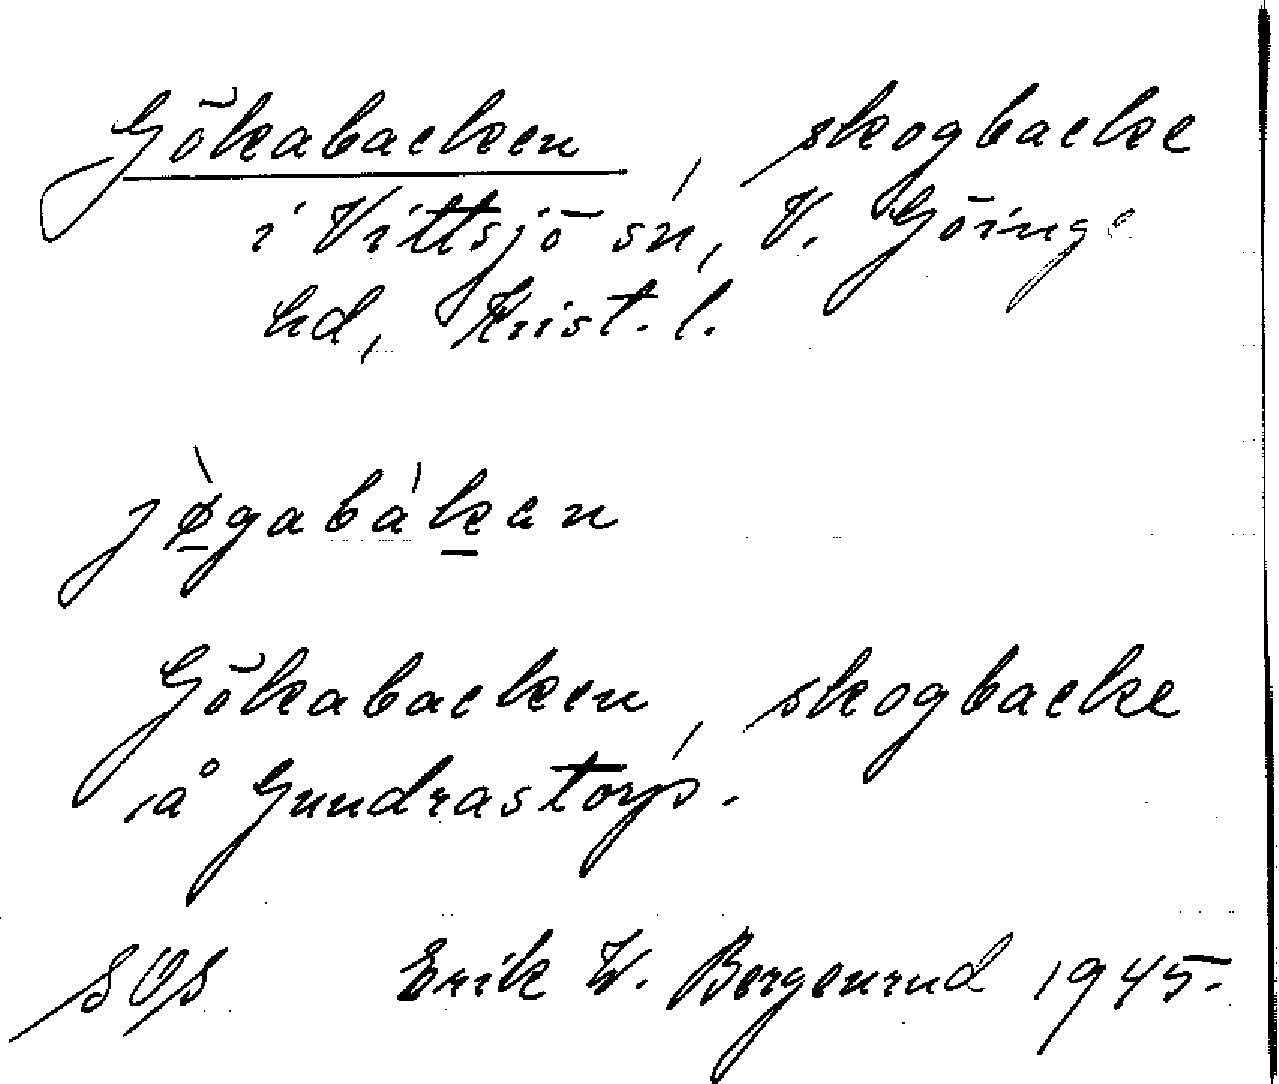 Gökabacken, skogbacke
i Vittsjö sn, V. Göinge
hd, Krist. l.
jø̀gabákan
Gökabacken, skogbacke
å Gundrastorp.
Erik W. Bergenrud 1945.